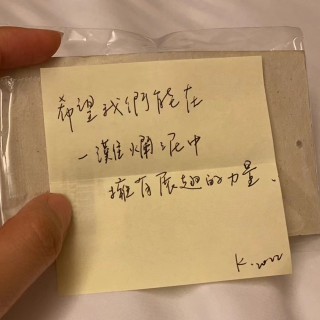 希望我們能在
一灘爛泥中
擁有展翅的力量.
K.2022